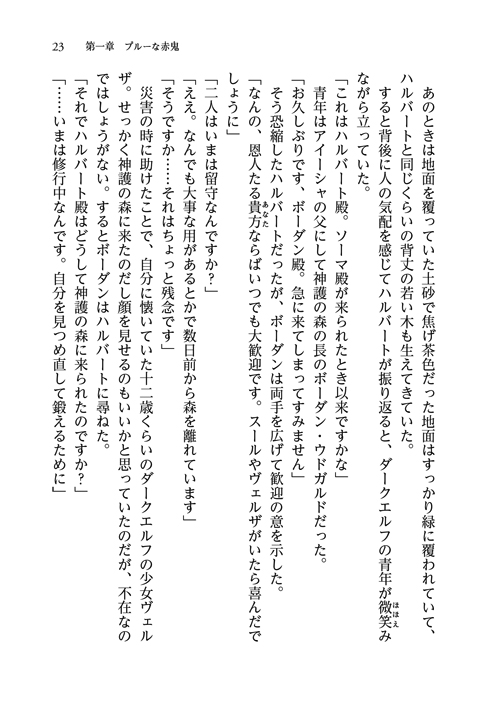 23　第一章　ブルーな赤鬼
　あのときは地面を覆っていた土砂で焦げ茶色だった地面はすっかり緑に覆われていて、
ハルバートと同じくらいの背丈の若い木も生えてきていた。
　すると背後に人の気配を感じてハルバートが振り返ると、ダークエルフの青年が微笑み
ながら立っていた。
「これはハルバート殿。ソーマ殿が来られたとき以来ですかな」
　青年はアイーシャの父にして神護の森の長のボーダン・ウドガルドだった。
「お久しぶりです、ボーダン殿。急に来てしまってすみません」
　そう恐縮したハルバートだったが、ボーダンは両手を広げて歓迎の意を示した。
「なんの、恩人たる貴方ならばいつでも大歓迎です。スールやヴェルザがいたら喜んだで
しょうに」
「二人はいまは留守なんですか？」
「ええ。なんでも大事な用があるとかで数日前から森を離れています」
「そうですか……それはちょっと残念です」
　災害の時に助けたことで、自分に懐いていた十二歳くらいのダークエルフの少女ヴェル
ザ。せっかく神護の森に来たのだし顔を見せるのもいいかと思っていたのだが、不在なの
ではしょうがない。するとボーダンはハルバートに尋ねた。
「それでハルバート殿はどうして神護の森に来られたのですか？」
「……いまは修行中なんです。自分を見つめ直して鍛えるために」
ほほえ
あなた